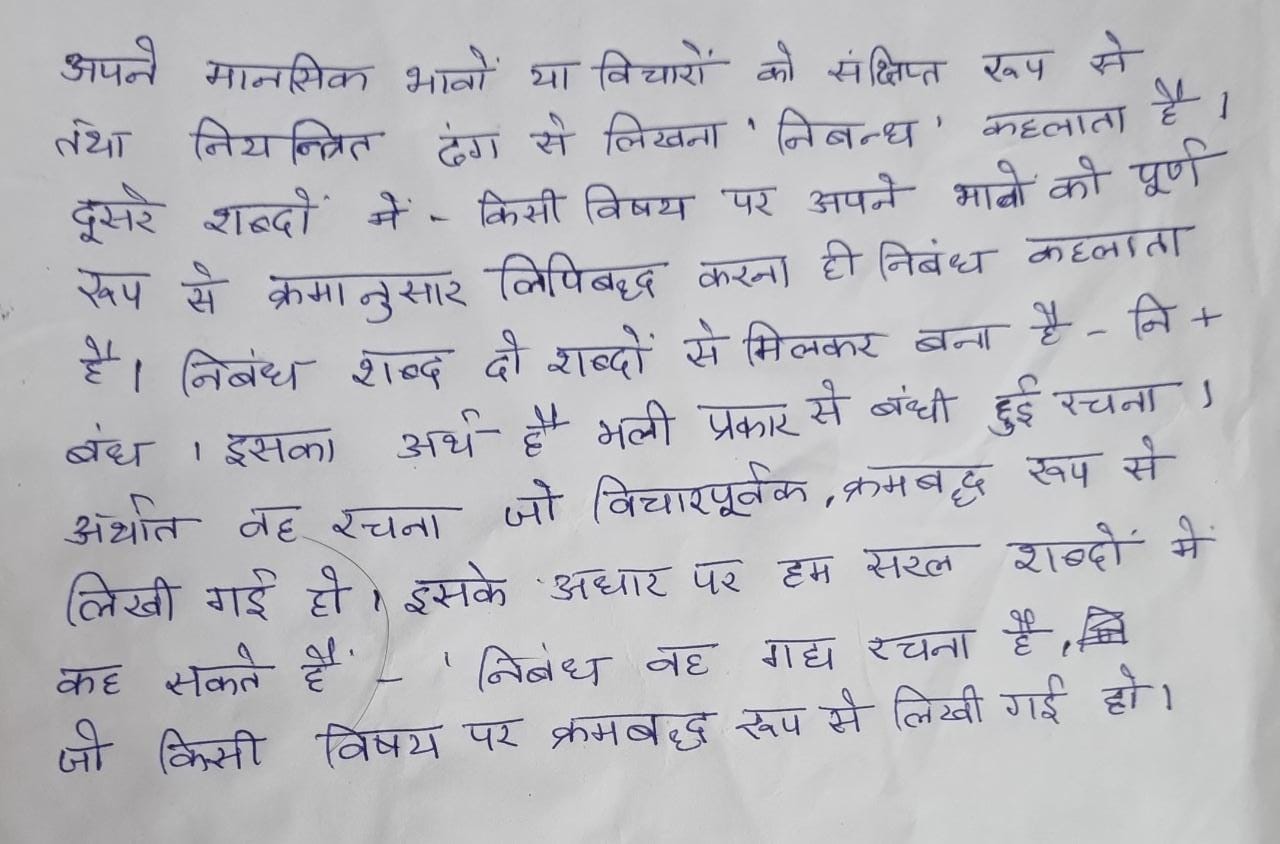 अपने मानसिक भावों या विचारों को संक्षिप्त रूप से
तथा नियन्त्रित ढंग से लिखना 'निबन्ध' कहलाता है।
दूसरे शब्दों में - किसी विषय पर अपने भावों को पूर्ण
रूप से क्रमानुसार लिपिबद्ध करना ही निबंध कहलाता
है। निबंध शब्द दो शब्दों से मिलकर बना है - नि +
बंध । इसका अर्थ है भली प्रकार से बंधी हुई रचना ।
अर्थात वह रचना जो विचारपूर्वक, क्रमबद्ध रूप से
लिखी गई हो। इसके अधार पर हम सरल शब्दों में
कह सकते हैं' - 'निबंध वह गद्य रचना है,
जो किसी विषय पर क्रमबद्ध रूप से लिखी गई हो।